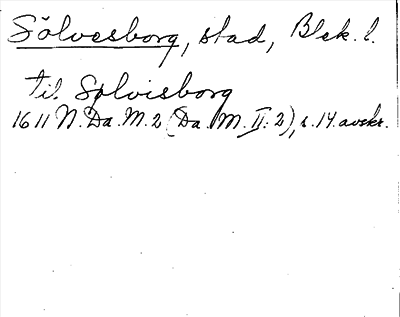 Sölvesborg, stad, Blek. l.
til Solvisborg
1611 N. Da. M. 2 (Da. M. II: 2), s. 14. avskr.